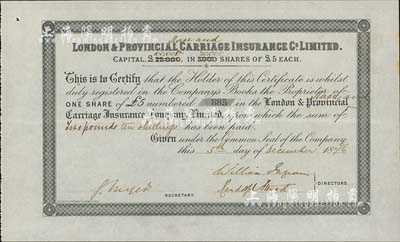 Horse and
LONDON & PROVINCIAL CARRIAGE INSURANCE Co. LIMITED.
100,000 20000
CAPITAL £ 25,000, IN 5000 SHARES OF £5 EACH.
This is to Certify that the Holder of this Certificate is whilst
duly registered in the Company's Books the Proprietor of
Horse and
ONE SHARE of £5 numbered 885 in the London & Provincial
Carriage Insurance Company, Limited, upon which the sum of
Two pounds ten shillings has been paid.
Given under the Common Seal of the Company
this 5th day of December 1876
William
DIRECTORS.
SECRETARY.